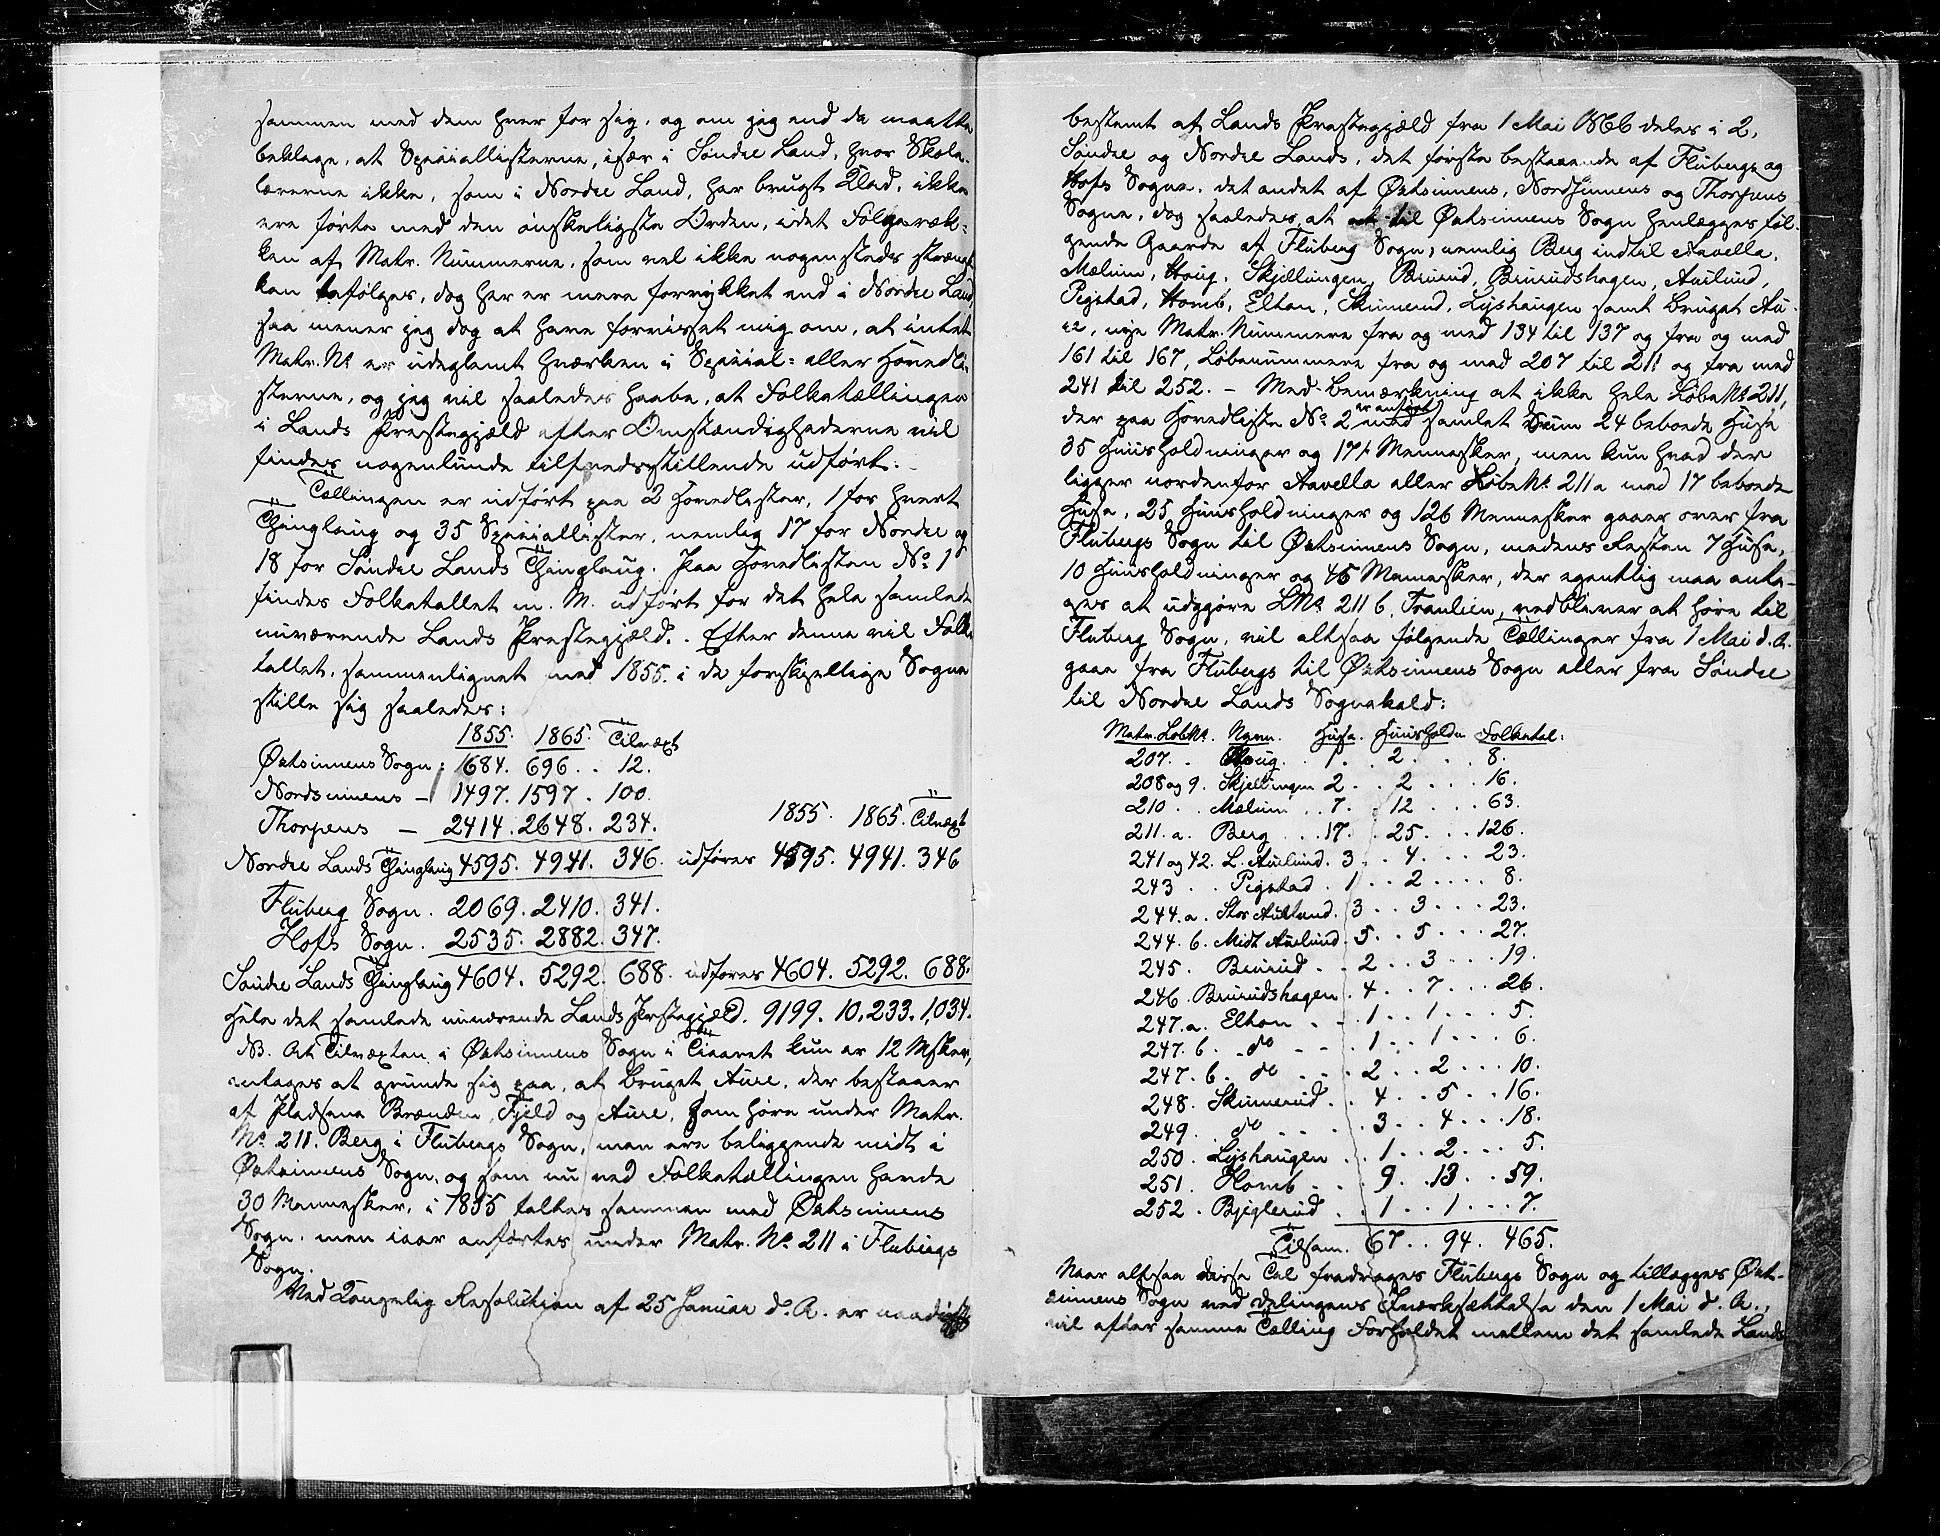 sammen med dem hver for sig, og om jeg end da maatte
beklage, at Speciallisterne, især i Søndre Land, hvor Skole-
lærerne ikke, som i Nordre Land, har brugt Blad, ikke
ere førte med den ønskeligste Orden, idet Følgeræk-
ken af Matr. Nummerne, som vel ikke nogensteds strængt
kan følges, dog her er mere forrykket end i Nordre Land
saa mener jeg dog at have forvisset mig om, at intet
Matr. No er udeglemt hverken i Special- eller Hovedli-
sterne, og jeg vil saaledes haabe, at Folketællingen
i Lands Præstegjæld efter Omstændighederne vil
findes nogenlunde tilfredsstillende udført.
Tællingen er udført paa 2 Hovedlister, 1 for hvert
Thinglaug og 35 Speciallister, nemlig 17 for Nordre og
18 for Søndre Lands Thinglaug. Paa Hovedlisten No 1
findes Folketallet m. M. udført for det hele samlede
nuværende Lands Præstegjæld. Efter denne vil Folke
tallet, sammenlignet med 1855, i de forskjellige Sogne
stille sig saaledes:
1855. 1865. Tilvæxt
Østsinnens Sogn: 1684. 696. 12.
Nordsinnens — 1497. 1597. 100.
Thorpens — 2414. 2648. 234. 1855. 1865. Tilvæxt
Nordre Lands Thinglaug 4595. 4941. 346. udføres 4595. 4941. 346
Fluberg Sogn. 2069. 2410. 341.
Hofs Sogn. 2535. 2882. 347.
Søndre Lands Thinglaug 4604. 5292. 688. udføres 4604. 5292. 688.
Hele det samlede nuværende Lands Præstegjæld. 9199. 10,233. 1,034.
NB. At Tilvæxten i Østsinnens Sogn i Tiaaret kun er 12 Msker,
antages at grunde sig paa, at Bruget Aure, der bestaaer
af Pladsene Brænden, Fjeld og Aure, som høre under Matr.
No 211. Berg i Flubergs Sogn, men ere beliggende midt i
Østsinnens Sogn, og som nu ved Folketællingen havde
30 Mennesker, i 1855 taltes sammen med Østsinnens
Sogn, men iaar anførtes under Matr. No 211 i Flubergs
Sogn.
Ved Kongelig Resolution af 25 Januar d. A. er naadigst
bestemt at Lands Præstegjæld fra 1 Mai 1866 deles i 2,
Søndre og Nordre Lands, det første bestaaende af Flubergs og
Hofs Sogne, det andet af Østsinnens, Nordsinnens og Thorpens
Sogne, dog saaledes, at til Østsinnens Sogn henlægges føl-
gende Gaarde af Fluberg Sogn, nemlig Berg indtil Aavella,
Mælum, Houg, Skjellingen, Bruud, Bruudshagen, Auslund,
Pegstad, Homb, Elton, Skumerud, Lyshaugen samt Bruget Au-
re, nye Matr. Nummere fra og med 134 til 137 og fra og med
161 til 167, Løbenummere fra og med 207 til 211 og fra med
241 til 252. — Med Bemærkning at ikke hele Løbe No 211,
der paa Hovedliste No 2 er anført med samlet Sum 24 beboede Huse
35 Huusholdninger og 171 Mennesker, men kun hvad der
ligger nordenfor Aavella eller Løbe No 211 a med 17 beboede
Huse, 25 Huusholdninger og 126 Mennesker gaaer over fra
Flubergs Sogn til Østsinnens Sogn, medens Resten 7 Huse,
10 Huusholdninger og 45 Mennesker, der egentlig maa anta-
ges at udgjøre L No 211 b, Tranlien, vedbliver at høre til
Fluberg Sogn, vil altsaa følgende Tællinger fra 1 Mai d. A.
gaae fra Flubergs til Østsinnens Sogn eller fra Søndre
til Nordre Lands Sognekald:
Matr. Løb No. Navn. Huse. Huusholdn. Folketal:
207. Houg. 1. 2. 8.
208 og 9. Skjellingen 2. 2. 16.
210. Mælum. 7. 12. 63.
211. a. Berg. 17. 25. 126.
241 og 42. L. Auslund. 3. 4. 23.
243. Pegstad. 1. 2. 8.
244. a. Stor Auslund. 3. 3. 23.
244. b. Midt Auslund. 5. 5. 27.
245. Bruud. 2. 3. 19.
246. Bruudshagen. 4. 7. 26.
247. a. Elton. 1. 1. 5.
247. b. do 1. 1. 6.
247. b. do 2. 2. 10.
248. Skumerud. 4. 5. 16.
249. do 3. 4. 18.
250. Lyshaugen. 1. 2. 5.
251. Homb. 9. 13. 59.
252. Bjeglerud. 1. 1. 7.
Tilsam. 67. 94. 465.
Naar altsaa disse Tal fradrages Flubergs Sogn og tillægges Øst-
sinnens Sogn ved Delingens Iværksættelse den 1 Mai d. A.,
vil efter samme Tælling Forholdet mellem det samlede Lands